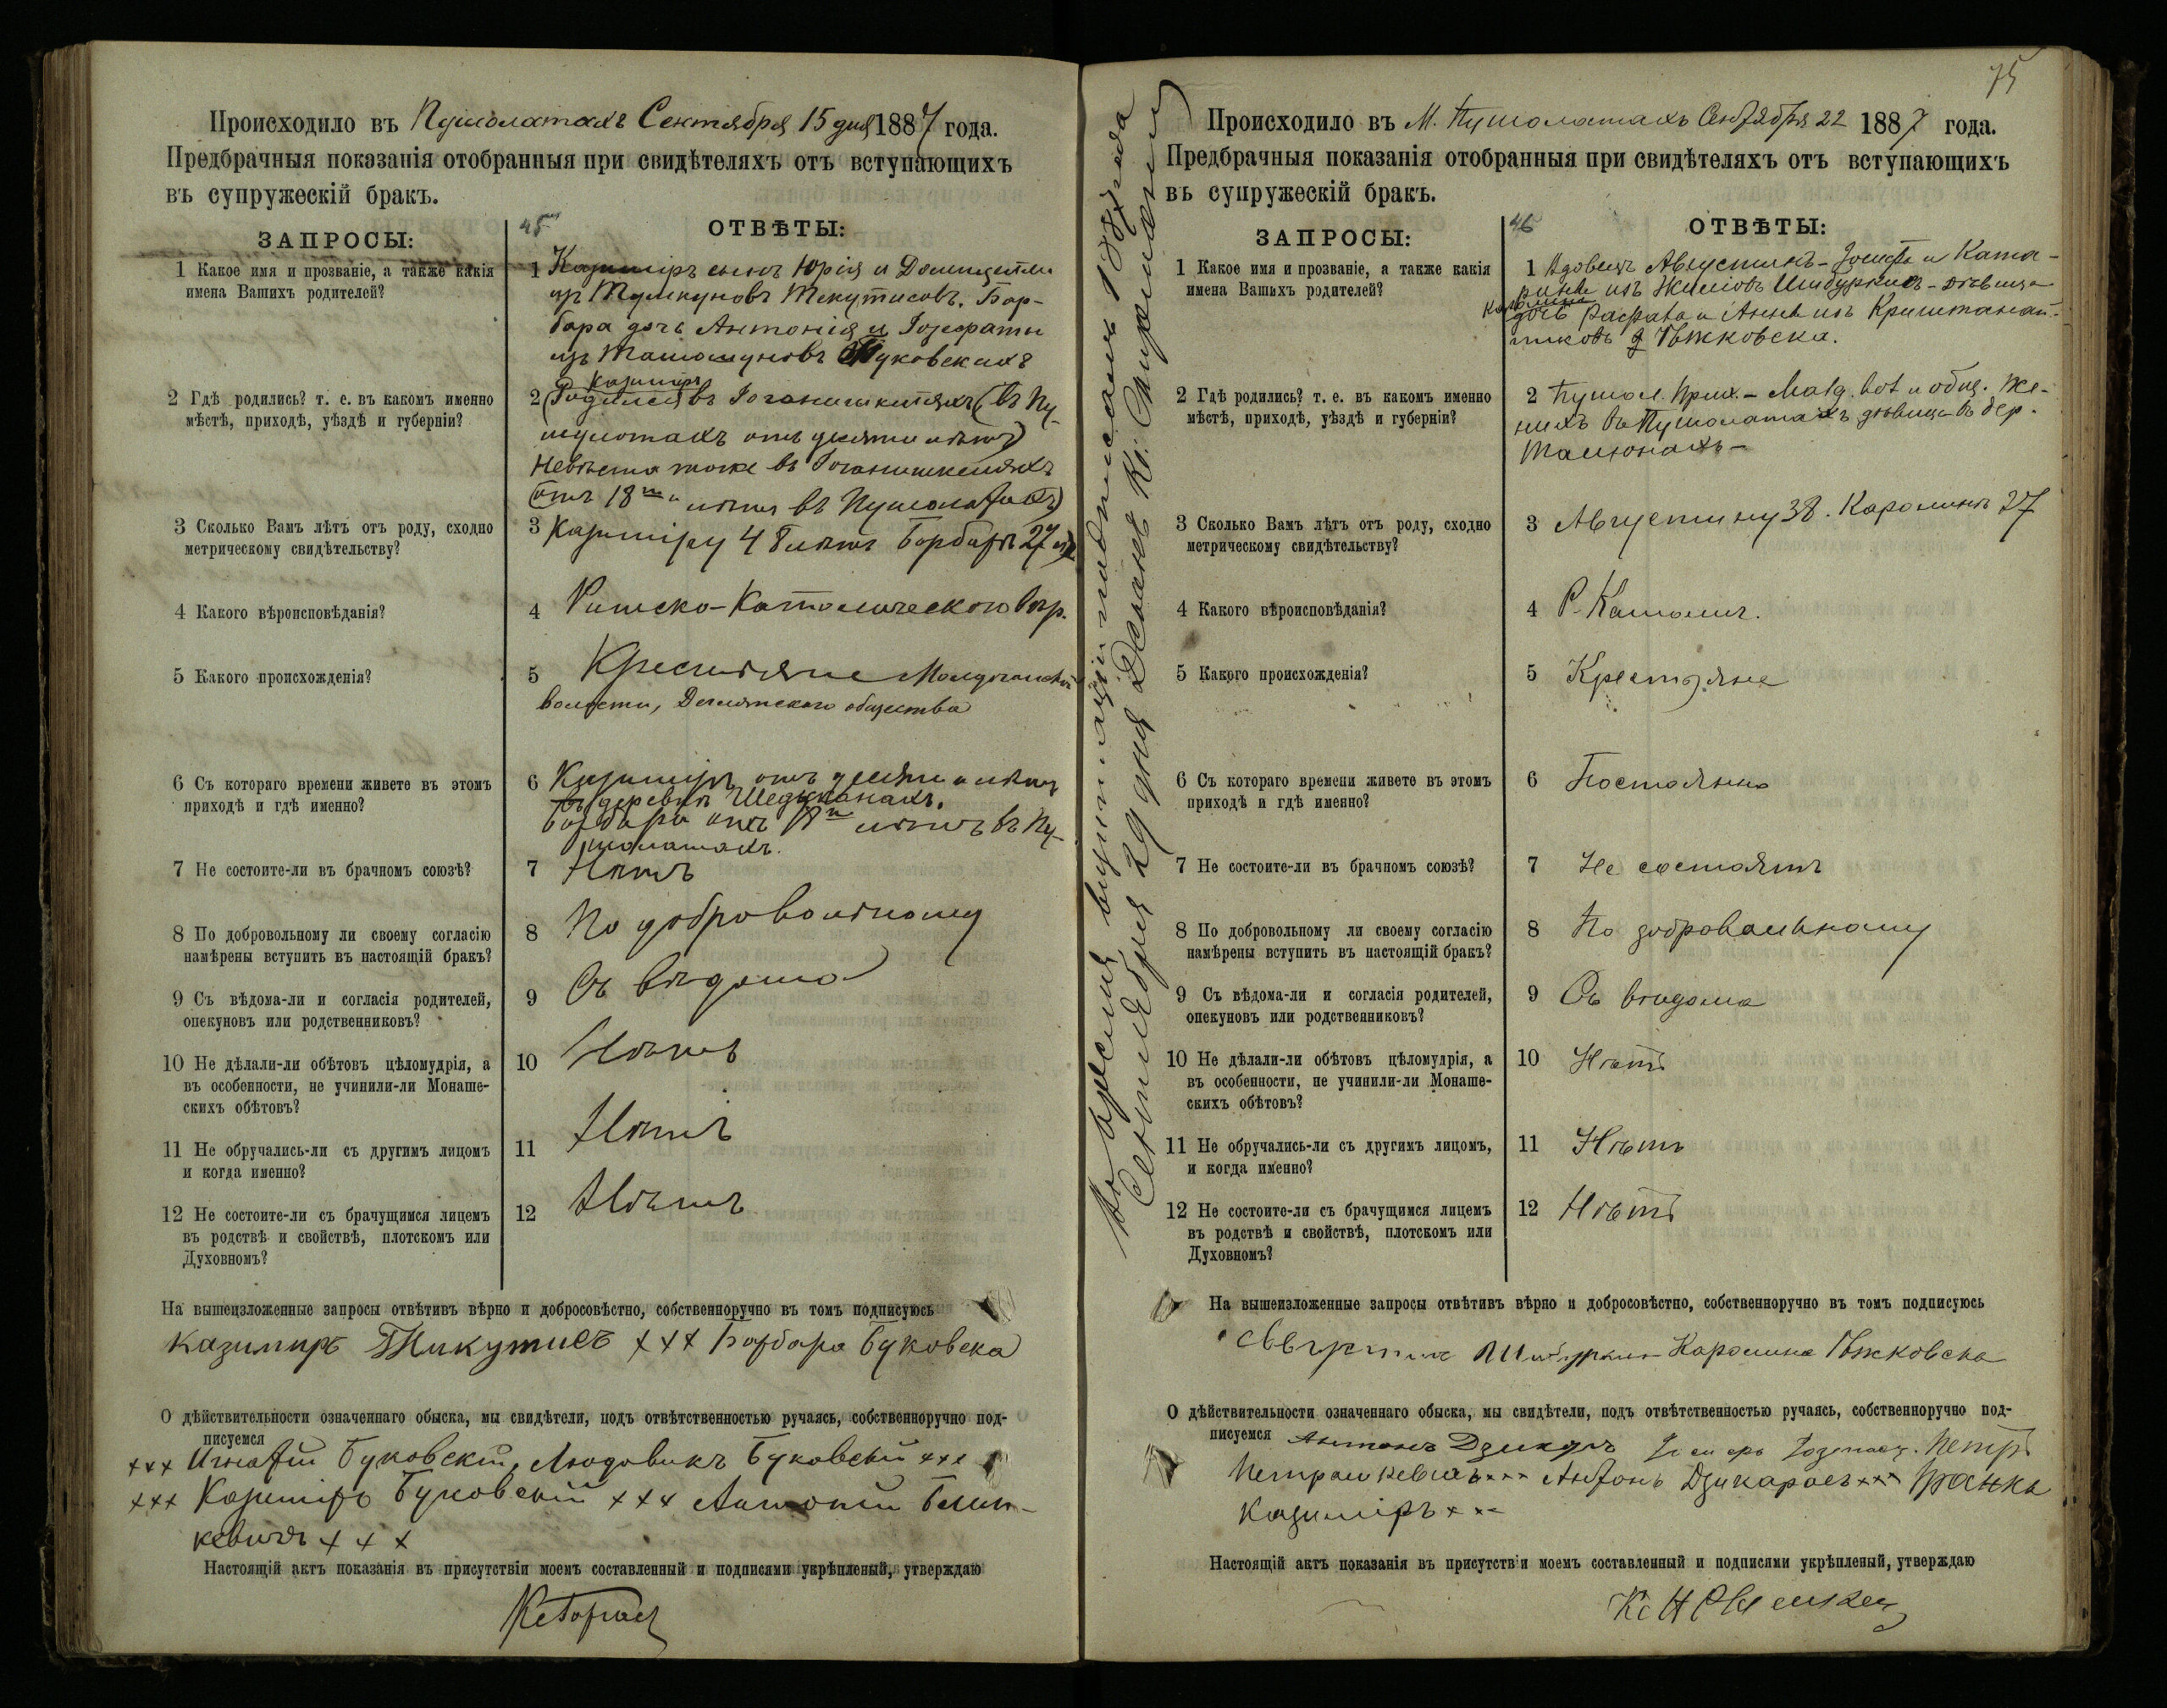 Происходило въ Пушолатахъ Сентября 15 дня 1887 года.
Предбрачныя показанія отобранныя при свидѣтеляхъ отъ вступающихъ
въ супружескій бракъ.
ЗАПРОСЫ:
45
ОТВѢТЫ:
1 Какое имя и прозваніе, а также какія
имена Вашихъ родителей?
1 Казиміръ сынъ Юрія и
изъ Бар-
бара дочь Антонія и Іозефаты
изъ Буковскихъ
2 Гдѣ родились? т. е. въ какомъ именно
мѣстѣ, приходѣ, уѣздѣ и губерніи?
Казиміръ
2 (Родился въ (въ Пу-
шолотахъ отъ десяти лѣтъ)
Невѣста тоже въ
(отъ 18ти лѣтъ въ Пушолатахъ)
3 Сколько Вамъ лѣтъ отъ роду, сходно
метрическому свидѣтельству?
3 Казиміру 48 лѣтъ Барбарѣ 27
4 Какого вѣроисповѣданія?
4 Римско-Католическаго
5 Какого происхожденія?
5 Крестьяне
волости, общества
6 Съ котораго времени живете въ этомъ
приходѣ и гдѣ именно?
6 Казиміръ отъ десяти лѣтъ
въ деревнѣ
Барбара отъ лѣтъ въ Пу-
шолатахъ.
7 Не состоите-ли въ брачномъ союзѣ?
7 Нѣтъ
8 По добровольному ли своему согласію
намѣрены вступить въ настоящій бракъ?
8 По добровольному
9 Съ вѣдома-ли и согласія родителей,
опекуновъ или родственниковъ?
9 Съ вѣдома
10 Не дѣлали-ли обѣтовъ цѣломудрія, а
въ особенности, не учинили-ли Монаше-
скихъ обѣтовъ?
10 Нѣтъ
11 Не обручались-ли съ другимъ лицомъ
и когда именно?
11 Нѣтъ
12 Не состоите-ли съ брачущимся лицемъ
въ родствѣ и свойствѣ, плотскомъ или
Духовномъ?
12 Нѣтъ
На вышеизложенные запросы отвѣтивъ вѣрно и добросовѣстно, собственноручно въ томъ подписуюсь
Казимиръ Микутисъ +++ Барбара Буковска
О дѣйствительности означеннаго обыска, мы свидѣтели, подъ отвѣтственностью ручаясь, собственноручно под-
писуемся
+++ Игнатій Буковскій, Людовикъ Буковскій +++
+++ Казиміръ Буковскій +++ Антоній
кевичъ +++
Настоящій актъ показанія въ присутствіи моемъ составленный и подписями укрѣпленый, утверждаю
75
Происходило въ М. Пушолатахъ Сентября 22 1887 года.
Предбрачныя показанія отобранныя при свидѣтеляхъ отъ вступающихъ
въ супружескій бракъ.
ЗАПРОСЫ:
46
ОТВѢТЫ:
1 Какое имя и прозваніе, а также какія
имена Вашихъ родителей?
1 Вдовецъ Августинъ - Іосифа и Ката-
рины изъ - дѣвица
Каролина
дочь и Анны изъ
2 Гдѣ родились? т. е. въ какомъ именно
мѣстѣ, приходѣ, уѣздѣ и губерніи?
2 Пушол. прих. - и общ. Же-
нихъ въ Пушолатахъ дѣвица въ дер.
3 Сколько Вамъ лѣтъ отъ роду, сходно
метрическому свидѣтельству?
3 Августину 38. Каролинѣ 27
4 Какого вѣроисповѣданія?
4 Р. Католич.
5 Какого происхожденія?
5 Крестьяне
6 Съ котораго времени живете въ этомъ
приходѣ и гдѣ именно?
6 Постоянно
7 Не состоите-ли въ брачномъ союзѣ?
7 Не состоятъ
8 По добровольному ли своему согласію
намѣрены вступить въ настоящій бракъ?
8 По добровольному
9 Съ вѣдома-ли и согласія родителей,
опекуновъ или родственниковъ?
9 Съ вѣдома
10 Не дѣлали-ли обѣтовъ цѣломудрія, а
въ особенности, не учинили-ли Монаше-
скихъ обѣтовъ?
10 Нѣтъ
11 Не обручались-ли съ другимъ лицомъ,
и когда именно?
11 Нѣтъ
12 Не состоите-ли съ брачущимся лицемъ
въ родствѣ и свойствѣ, плотскомъ или
Духовномъ?
12 Нѣтъ
На вышеизложенные запросы отвѣтивъ вѣрно и добросовѣстно, собственноручно въ томъ подписуюсь
Каролина
О дѣйствительности означеннаго обыска, мы свидѣтели, подъ отвѣтственностью ручаясь, собственноручно под-
писуемся Петръ
Петрошкевичъ +++ Антонъ +++
Казиміръ +++
Настоящій актъ показанія въ присутствіи моемъ составленный и подписями укрѣпленый, утверждаю
Во время визитаціи подписалъ 1887 года
Сентября 29 дня Деканъ Кс.